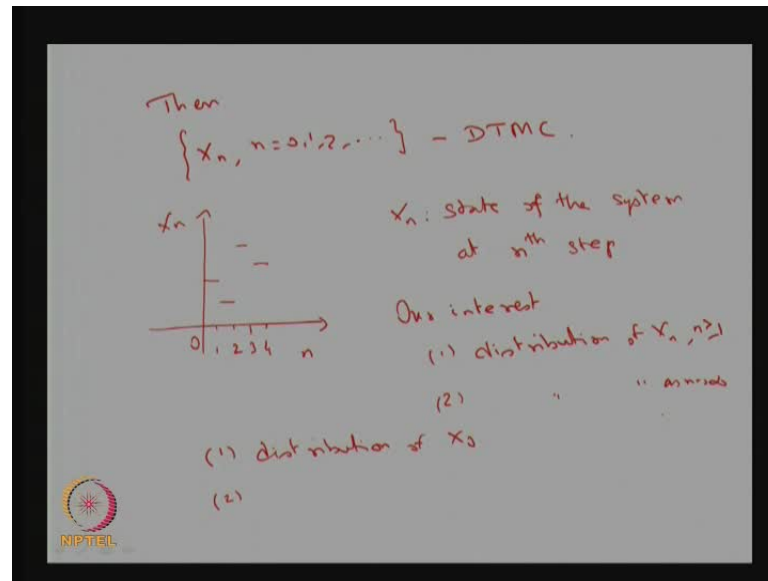 Then
{Xn, n=0,1,2,...} - DTMC.
Xn
Xn: state of the system
at nth step
0 1 2 3 4 n
Our interest
(1) distribution of Xn, n≥1
(2) " " as n→∞
(1) distribution of X0
(2)
NPTEL